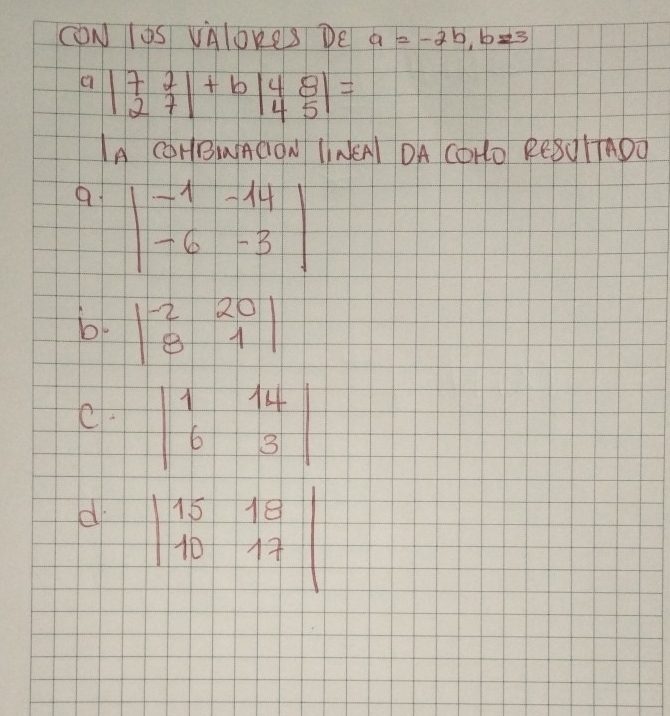 CON LOS VALORES DE a = -2b, b=3
a |7 2| + b |4 8| =
|2 7| |4 5|
LA COMBINACION LINEAL DA COMO RESULTADO
a. |-1 -14|
|-6 -3|
b. |-2 20|
|8 1|
c. |1 14|
|6 3|
d. |15 18|
|10 17|